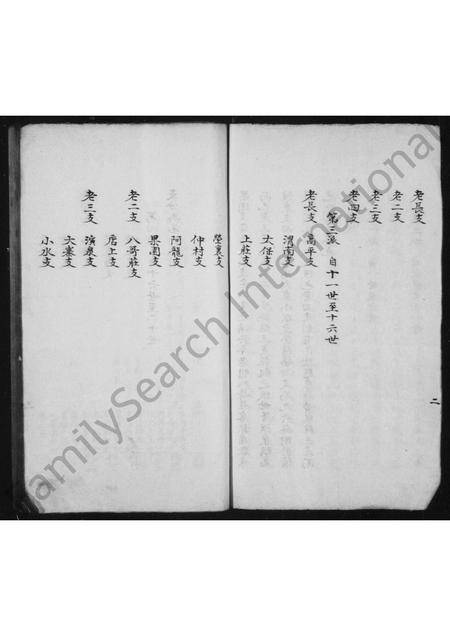 老長支
老二支
老三支
老四支
第三派 自十一世至十六世
老長支 高平支
渭南支
太任支
上莊支
塋裏支
仲村支
阿龍支
果園支
老二支 八哥莊支
唐上支
老三支 演泉支
大寨支
小水支
二
FamilySearch International